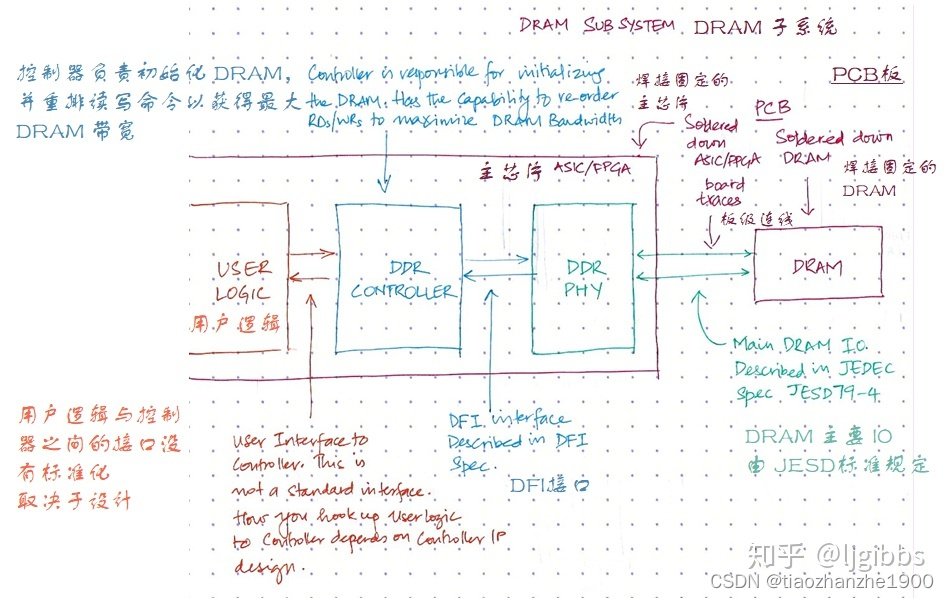 DRAM SUBSYSTEM DRAM 子系统
控制器负责初始化 DRAM,
并重排读写命令以获得最大
DRAM 带宽
Controller is responsible for initializing
the DRAM. Has the capability to re-order
RDs/WRs to maximize DRAM Bandwidth
焊接固定的
主芯片
PCB板
PCB
Soldered
down
ASIC/FPGA
Soldered down
DRAM
焊接固定的
DRAM
主芯片 ASIC/FPGA
board
traces
板级连线
USER
LOGIC
用户逻辑
DDR
CONTROLLER
DDR
PHY
DRAM
Main DRAM I.O.
Described in JEDEC
Spec JESD79-4
DRAM 主要 IO
由 JESD标准规定
用户逻辑与控制
器之间的接口没
有标准化
取决于设计
User Interface to
Controller. This is
not a standard interface.
How you hook up User logic
to Controller depends on Controller IP
design.
DFI interface
Described in DFI
Spec.
DFI接口
知乎 @ljgibbs
CSDN @tiaozhanzhe1900